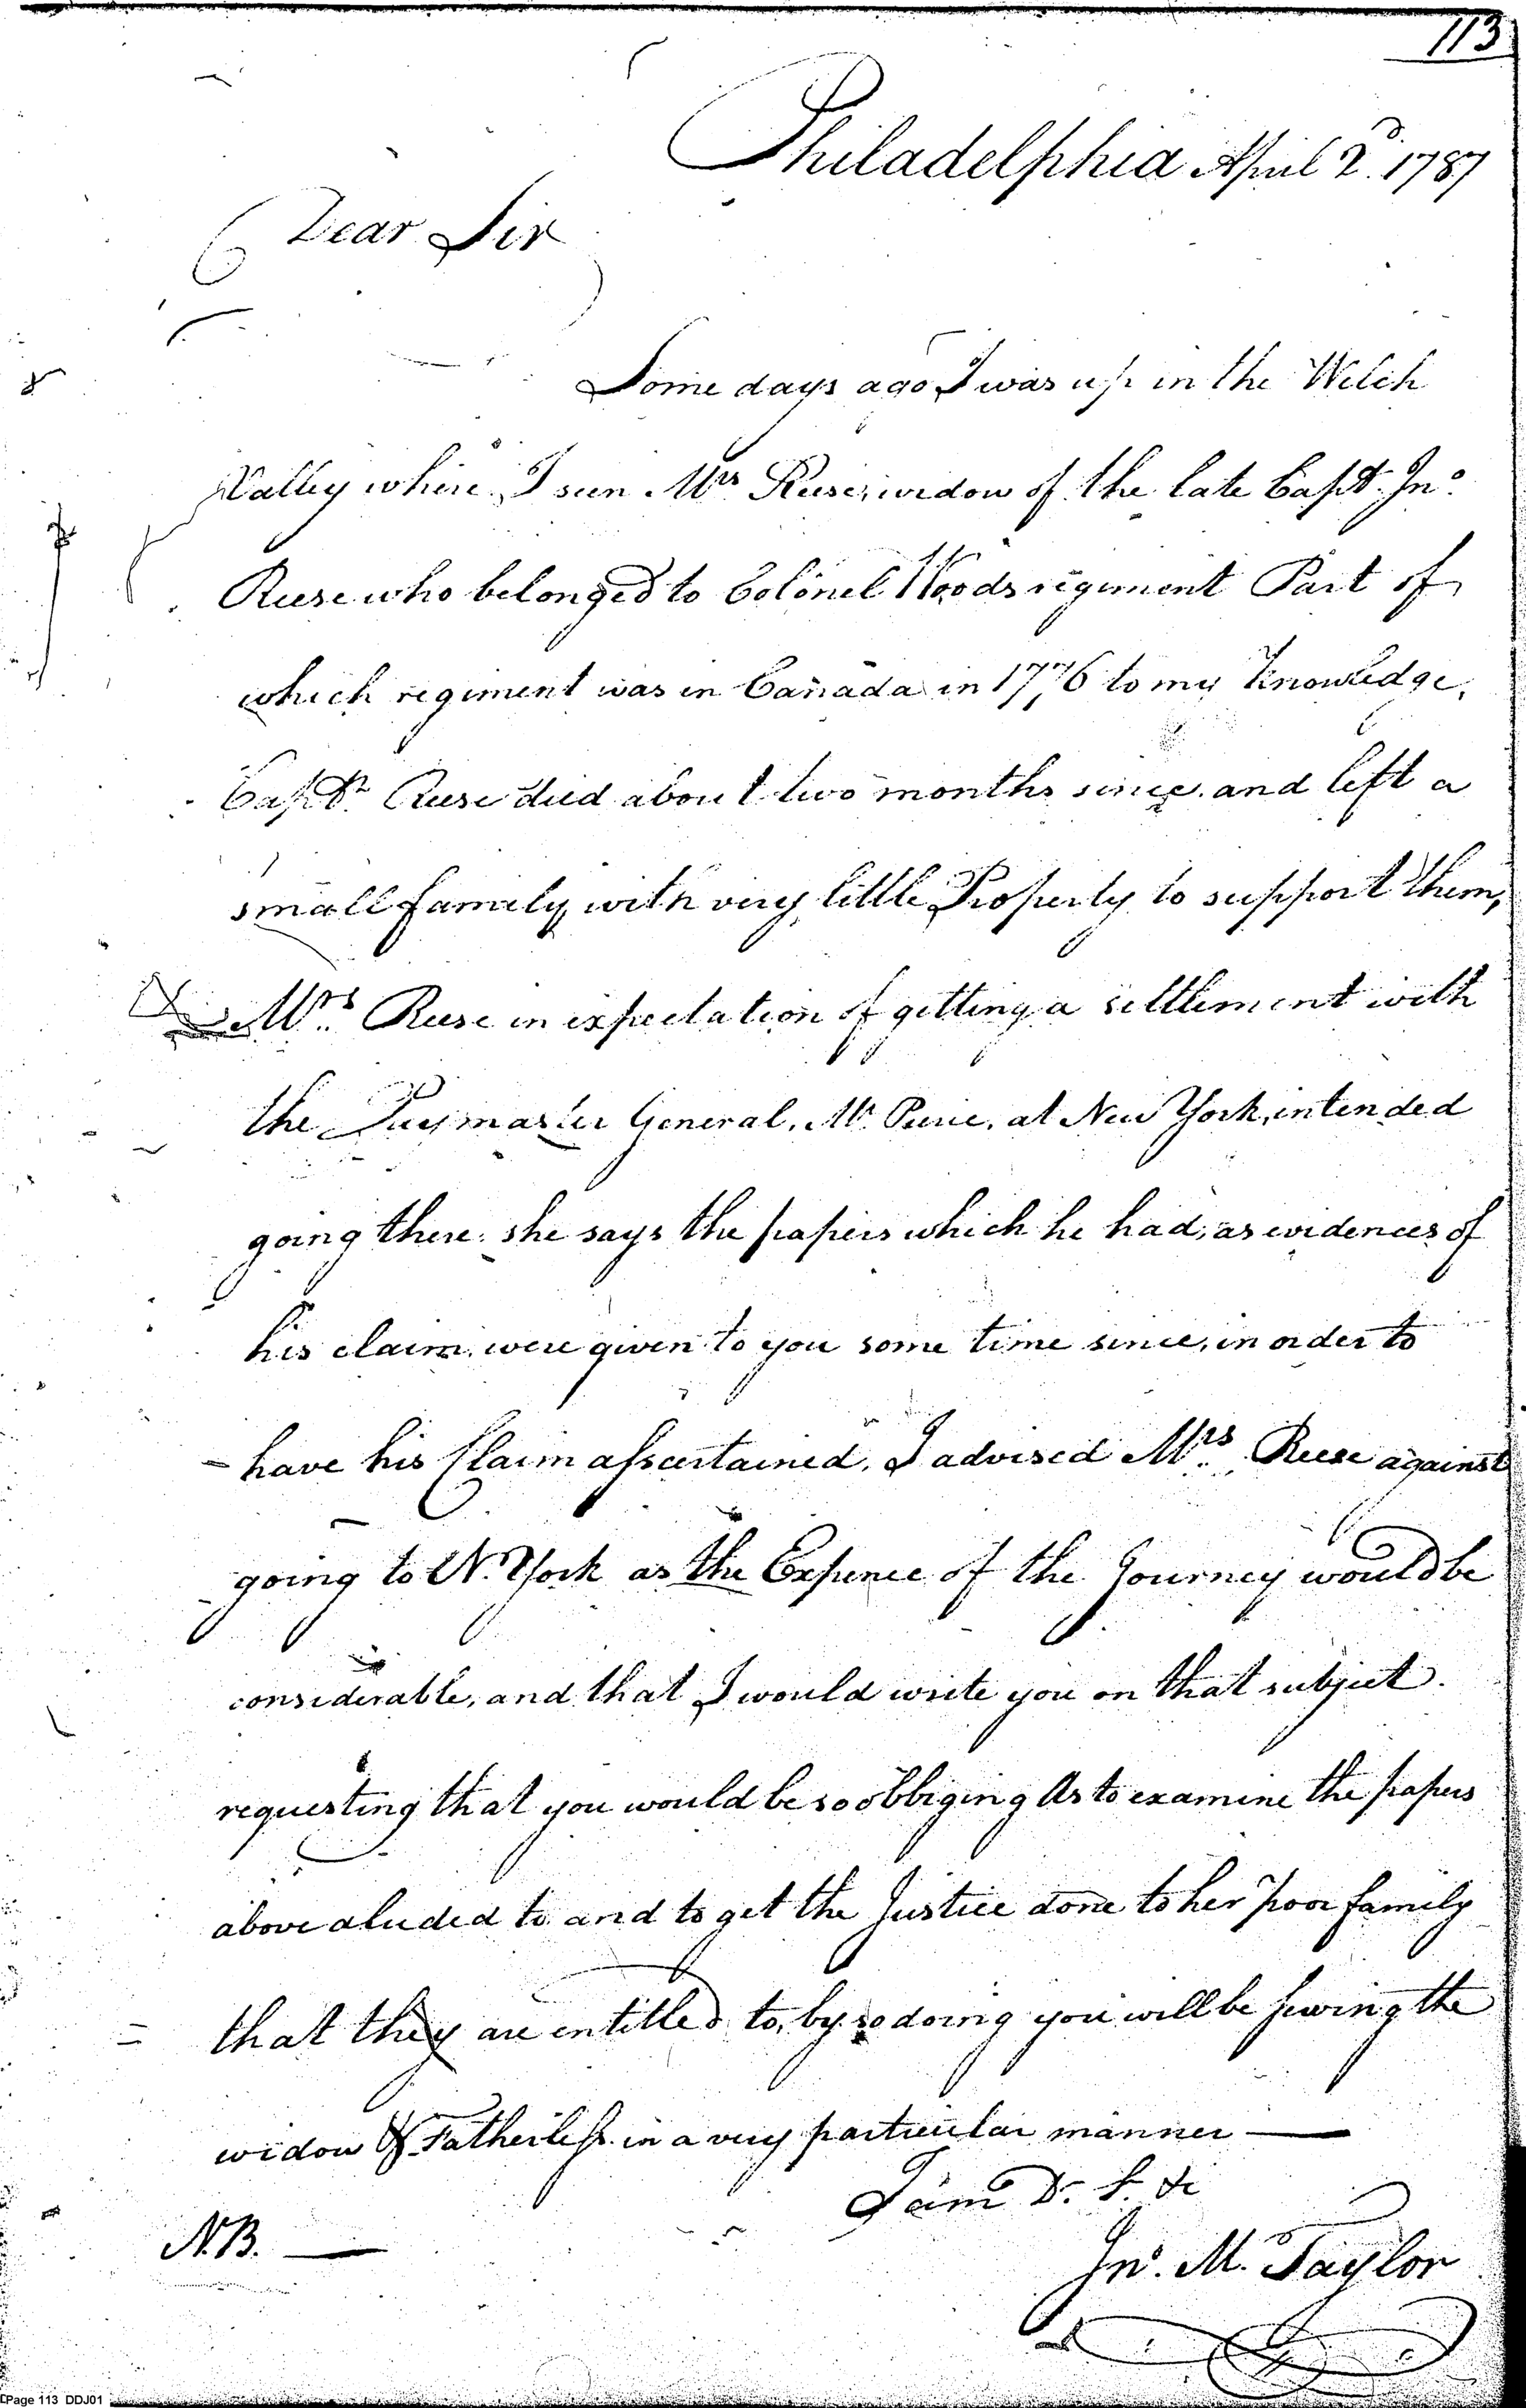 113
Philadelphia April 2d. 1787
Dear Sir
Some days ago I was up in the Welch
Valley where I seen Mrs Reese, widow of the late Capt. Jno.
Reese who belonged to Colonel Woods regiment Part of
which regiment was in Canada in 1776 to my Knowledge,
Capt. Reese died about two months since, and left a
small family with very little Property to support them,
Mrs. Reese in expectation of getting a settlement with
the Paymaster General, Mr. Peirce, at New York, intended
going there: she says the papers which he had, as evidences of
his claim, were given to you some time since, in order to
have his Claim assertained, I advised Mrs. Reese against
going to N. York as the Expence of the Journey would be
considerable, and that I would write you on that subject.
requesting that you would be so obbliging As to examine the papers
above aluded to and to get the Justice done to her poor family
that they are entitled to, by so doing you will be serving the
widow & Fatherless in a very particular manner —
I am D. S. &c
N.B. —
Jno. M. Taylor
Page 113 DDJ01